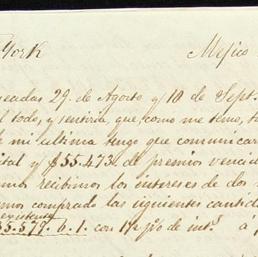 York Mejico
seadas 29. de Agosto y 10 de Sept.
l todo, y sentiria, que, como me temo, h
e mi ultima tengo que comunicar
ital y $55.473. de premios venci
mos recibimos los intereses de dos
mos comprado las siguientes cantid
existente
35.579. 6. 1. con 1½ p%. de int.s á